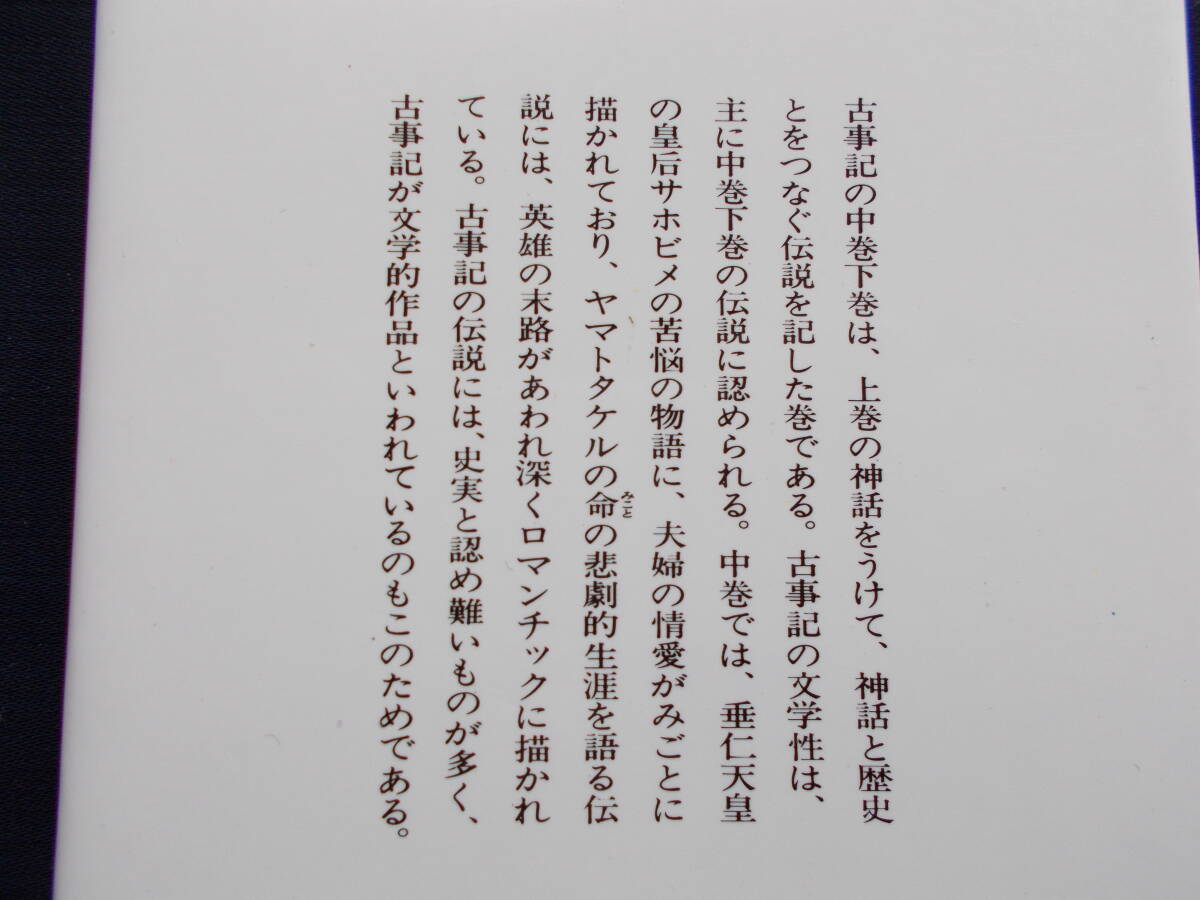 古事記の中巻下巻は、上巻の神話をうけて、神話と歴史
とをつなぐ伝説を記した巻である。古事記の文学性は、
主に中巻下巻の伝説に認められる。中巻では、垂仁天皇
の皇后サホビメの苦悩の物語に、夫婦の情愛がみごとに
描かれており、ヤマトタケルの命の悲劇的生涯を語る伝
みこと
説には、英雄の末路があわれ深くロマンチックに描かれ
ている。古事記の伝説には、史実と認め難いものが多く、
古事記が文学的作品といわれているのもこのためである。